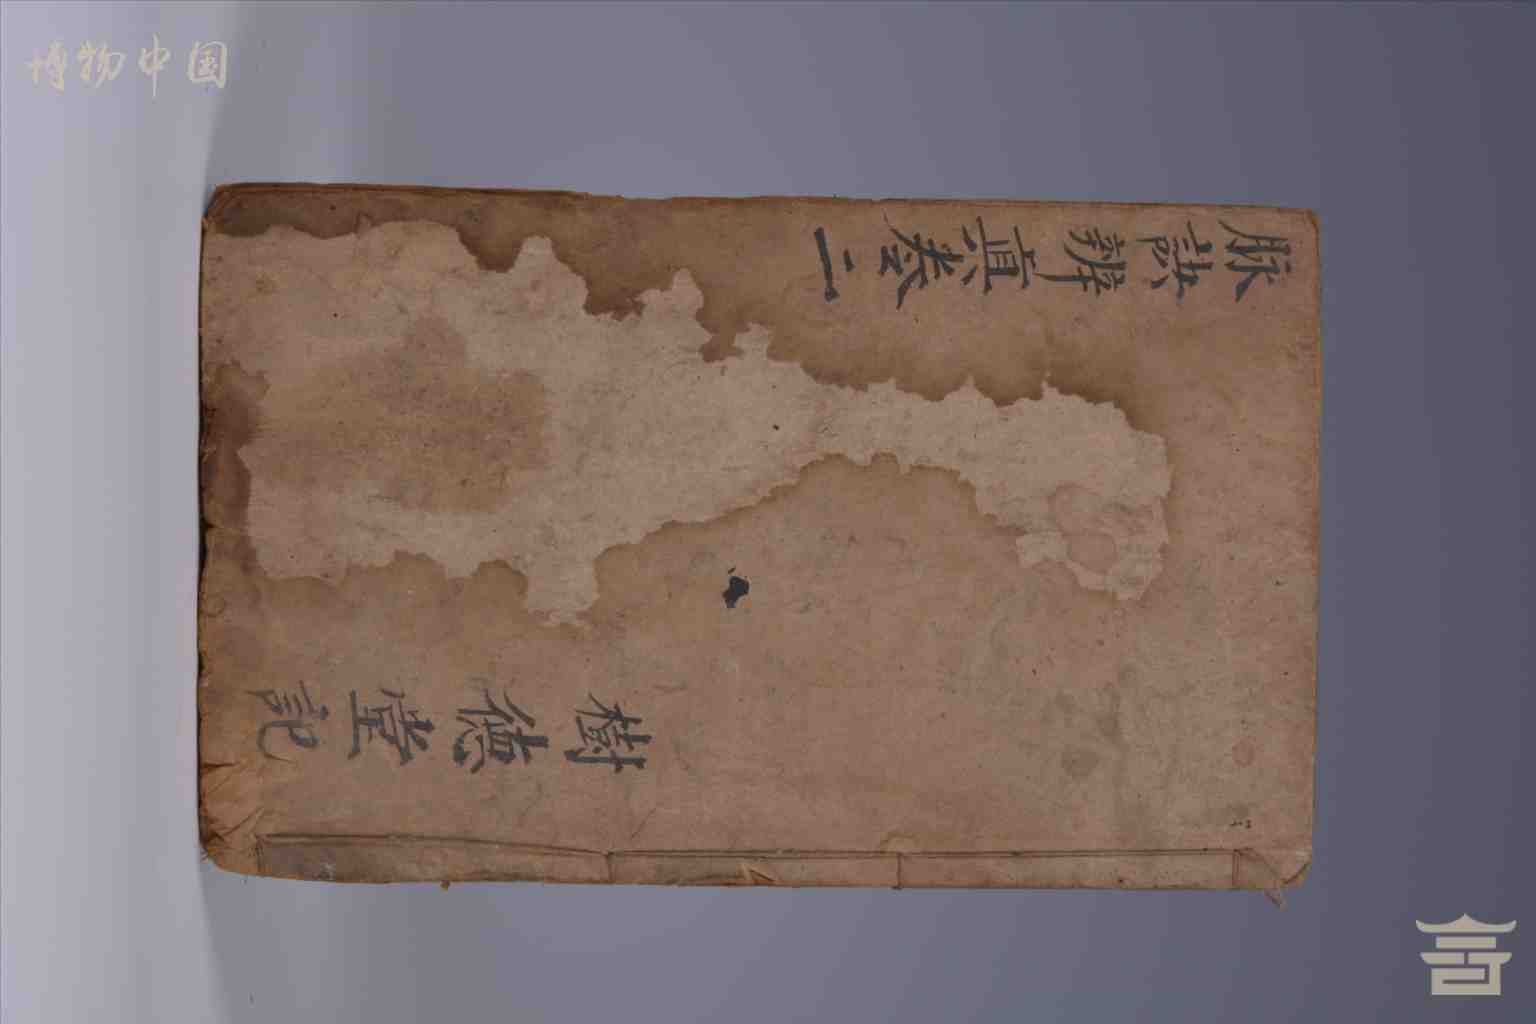 博物中国
脉诀辨真卷二
樹德堂記